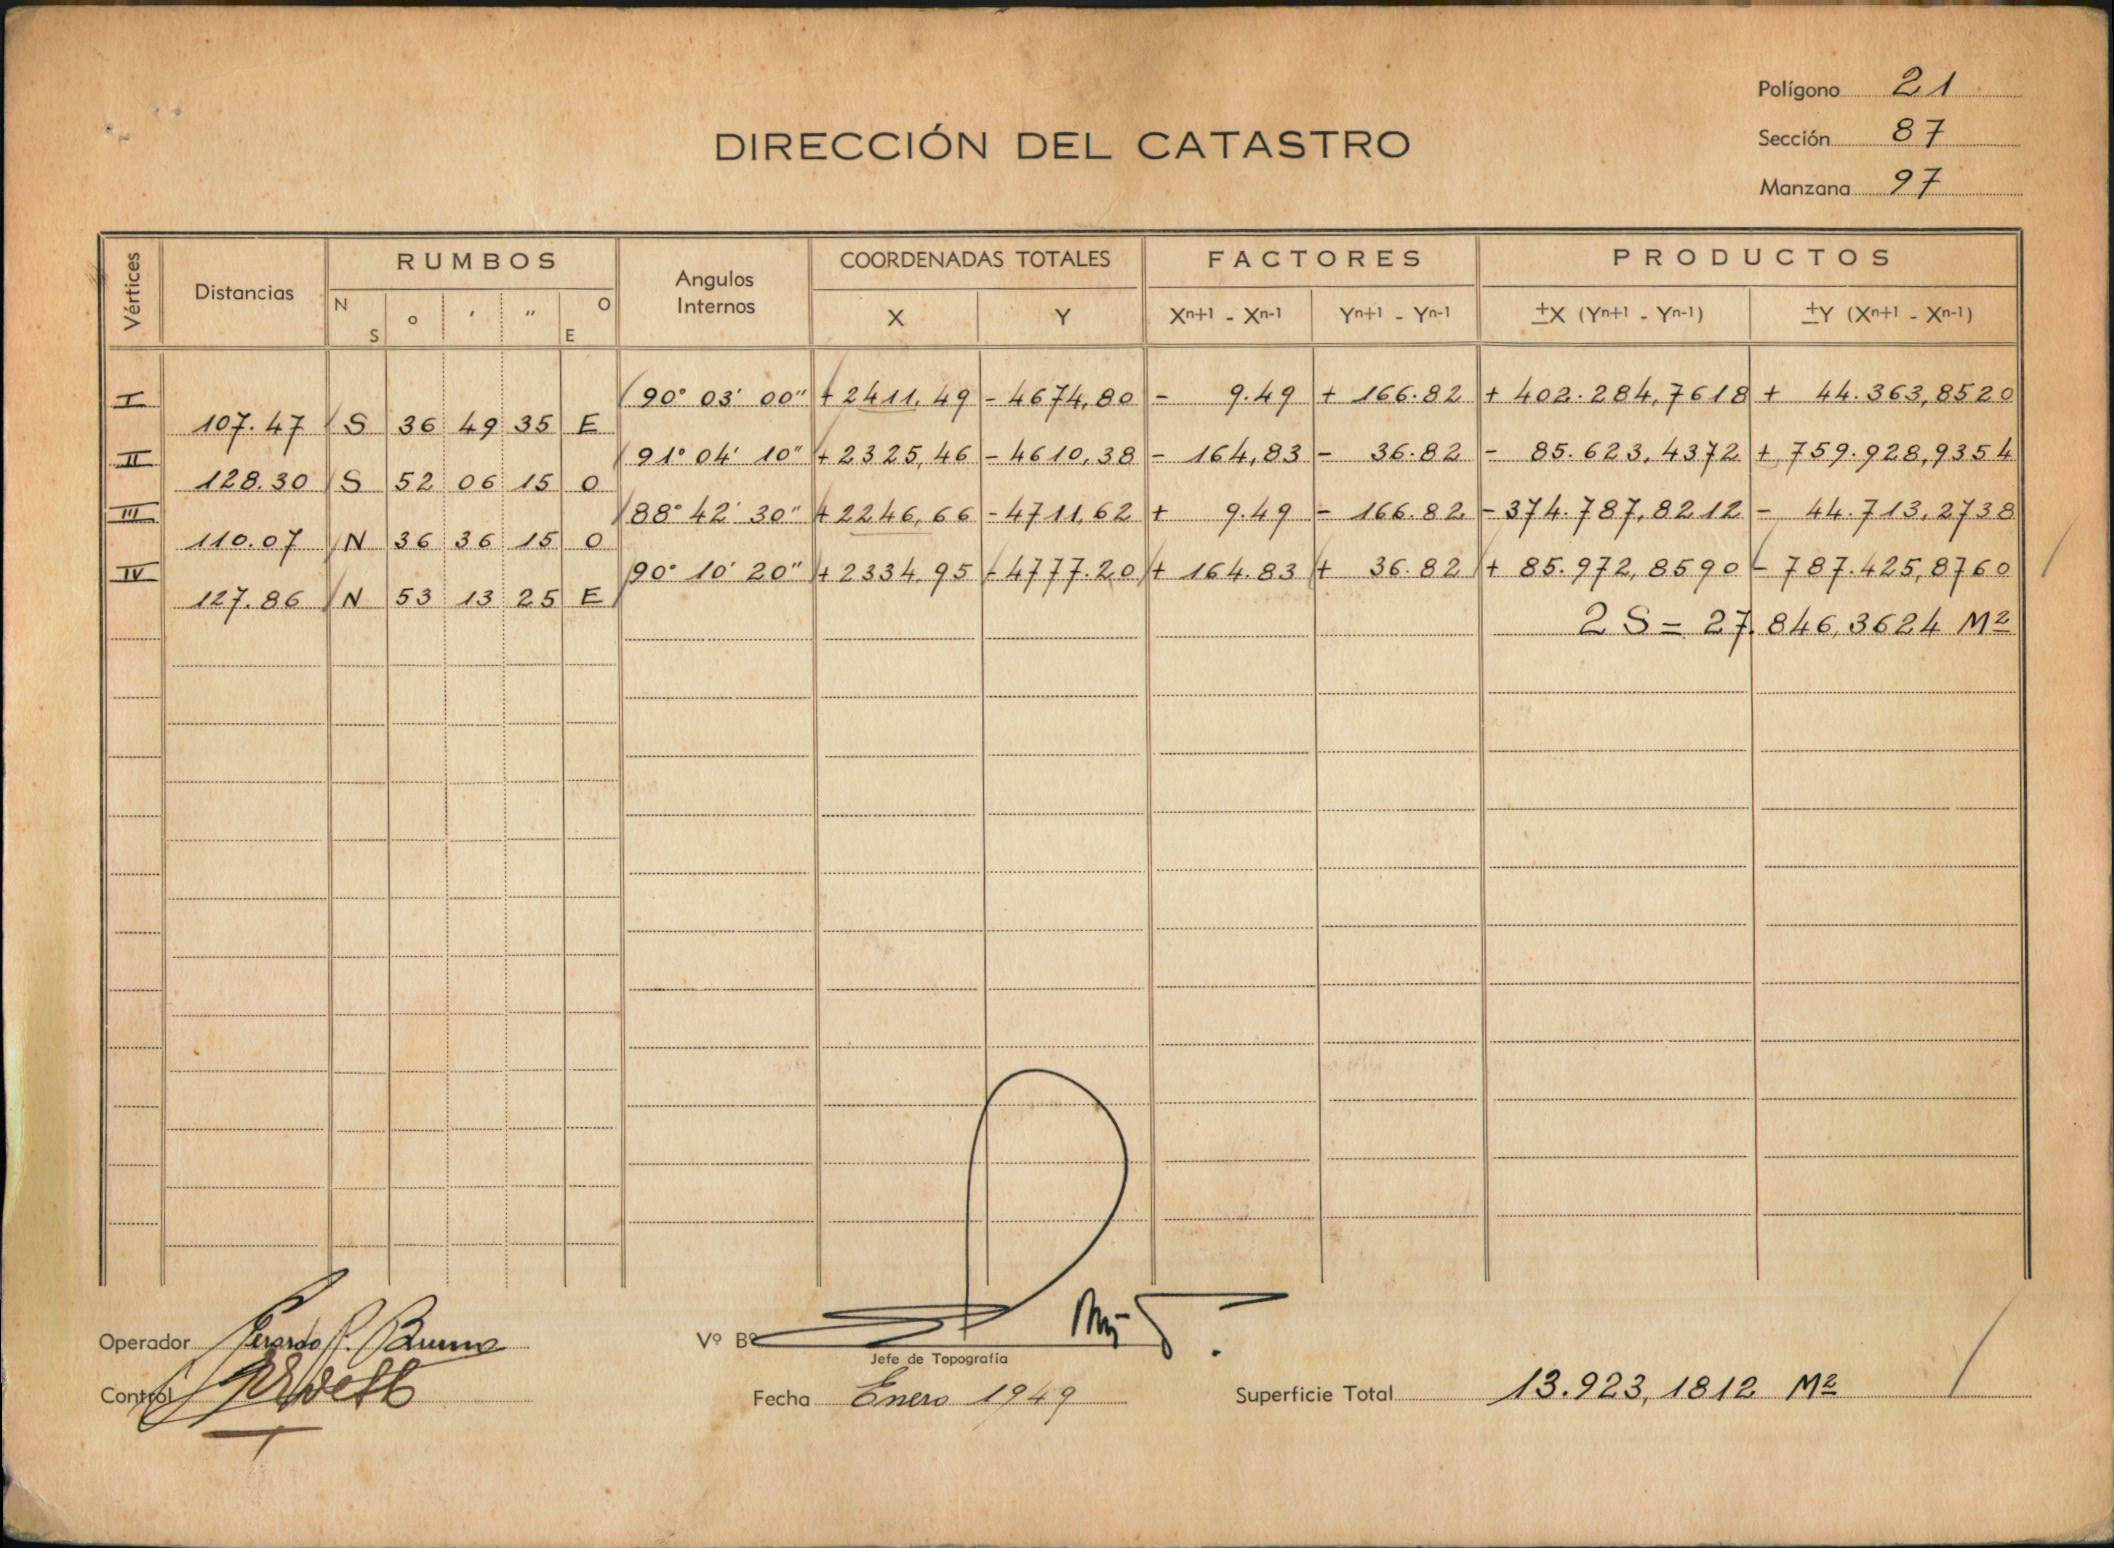 Polígono 21
DIRECCIÓN DEL CATASTRO
Sección 87
Manzana 97
Vértices Distancias RUMBOS Angulos Internos COORDENADAS TOTALES FACTORES PRODUCTOS
N S o ' " O E X Y Xn+1 - Xn-1 Yn+1 - Yn-1 ±X (Yn+1 - Yn-1) ±Y (Xn+1 - Xn-1)
I 90° 03' 00" + 2411,49 - 4674,80 - 9.49 + 166.82 + 402.284,7618 + 44.363,8520
107.47 S 36 49 35 E
II 91° 04' 10" + 2325,46 - 4610,38 - 164,83 - 36.82 - 85.623,4372 + 759.928,9354
128.30 S 52 06 15 O
III 88° 42' 30" + 2246,66 - 4711,62 + 9.49 - 166.82 - 374.787,8212 - 44.713,2738
110.07 N 36 36 15 O
IV 90° 10' 20" + 2334,95 - 4777.20 + 164.83 + 36.82 + 85.972,8590 - 787.425,8760
127.86 N 53 13 25 E
2 S = 27.846,3624 M²
Operador Gerardo P. Bruno Vº Bº
Jefe de Topografía
Control Fecha Enero 1949 Superficie Total 13.923,1812 M²